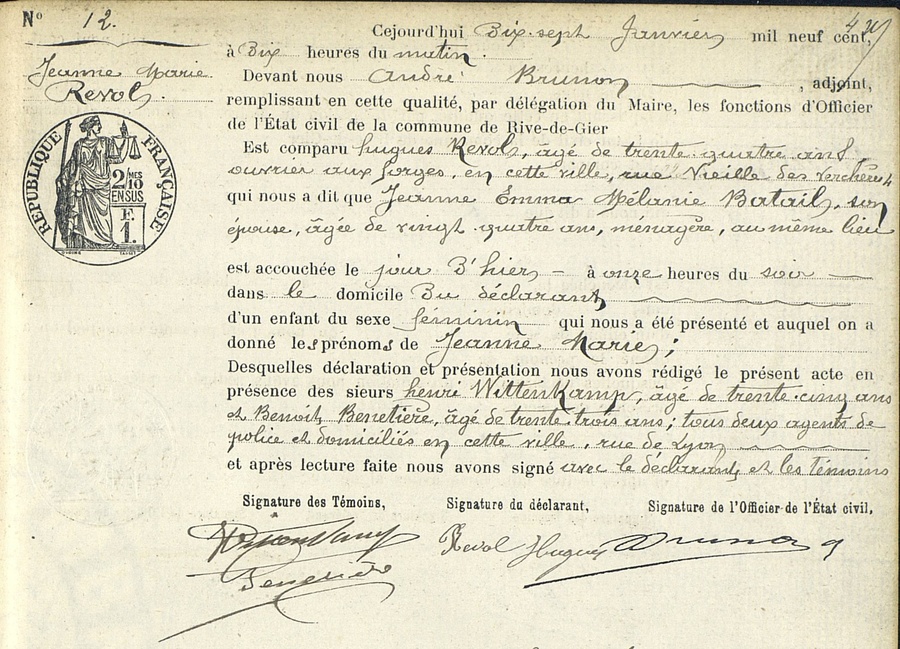 N° 12.
Jeanne Marie
Revol.
RÉPUBLIQUE FRANÇAISE
2/10 MES
EN SUS
F.
1.
Cejourd'hui Dix-sept Janvier mil neuf cent,
à Dix heures du matin.
Devant nous André Brunon, adjoint,
remplissant en cette qualité, par délégation du Maire, les fonctions d'Officier
de l'État civil de la commune de Rive-de-Gier
Est comparu hugues Revol, âgé de trente-quatre ans,
ouvrier aux forges, en cette ville, rue Vieille des Verchères
qui nous a dit que Jeanne Emma Mélanie Batail, son
épouse, âgée de vingt-quatre ans, ménagère, au même lieu
est accouchée le jour D'hier – à onze heures du soir
dans le domicile Du déclarant
d'un enfant du sexe féminin qui nous a été présenté et auquel on a
donné les prénoms de Jeanne Marie;
Desquelles déclaration et présentation nous avons rédigé le présent acte en
présence des sieurs henri WittenKamp, âgé de trente-cinq ans
et Benoit Benetière, âgé de trente-trois ans; tous deux agents de
police et domiciliés en cette ville, rue de Lyon
et après lecture faite nous avons signé avec le déclarant et les témoins
Signature des Témoins, Signature du déclarant, Signature de l'Officier de l'État civil,
Revol Hugues Brunon